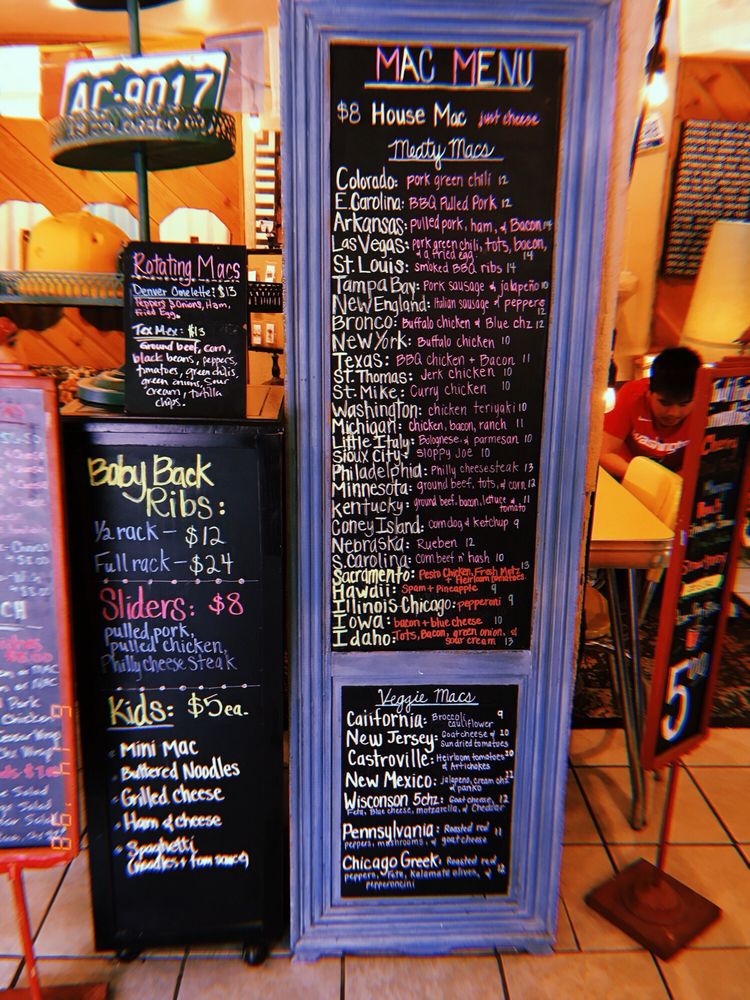 AC·9017
MAC MENU
$8 House Mac just cheese
Meaty Macs
Colorado: pork green chili 12
E.Carolina: BBQ Pulled Pork 12
Arkansas: pulled pork, ham, & Bacon 14
Las Vegas: pork green chili, tots, bacon,
& a fried egg 14
St. Louis: smoked BBQ ribs 14
Tampa Bay: Pork sausage & jalapeño 10
New England: Italian sausage & peppers 12
Bronco: Buffalo chicken & Blue chz 12
New York: Buffalo chicken 10
Texas: BBQ chicken + Bacon 11
St. Thomas: Jerk chicken 10
St. Mike: Curry chicken 10
Washington: chicken teriyaki 10
Michigan: chicken, bacon, ranch 11
Little Italy: Bolognese & parmesan 10
Sioux City: Sloppy Joe 10
Philadelphia: Philly cheesesteak 13
Minnesota: ground beef, tots, & corn 12
Kentucky: ground beef, bacon, lettuce & 11
tomato
Coney Island: corndog & ketchup 9
Nebraska: Rueben 12
S. Carolina: corn beef n' hash 10
Sacramento: Pesto Chicken, Fresh Motz 13
+ Heirloom tomatoes
Hawaii: Spam + Pineapple 9
Illinois Chicago: pepperoni 9
Iowa: bacon + blue cheese 10
Idaho: Tots, Bacon, green onion, &
sour cream 13
Veggie Macs
California: Broccoli 9
cauliflower
New Jersey: Goat cheese & 10
Sundried tomatoes
Castroville: Heirloom tomatoes 10
& Artichokes
New Mexico: jalapeno, cream chz 11
& panko
Wisconson 5chz: Goat cheese, 12
Feta, Blue cheese, motzarella, & Cheddar
Pennsylvania: Roasted red 11
peppers, mushrooms, & goat cheese
Chicago Greek: Roasted red
peppers, Feta, Kalamata olives, & 12
pepperoncini
Rotating Macs
Denver Omelette: $13
Peppers & Onions, Ham,
Fried Egg
Tex Mex: $13
Ground beef, corn,
black beans, peppers,
tomatoes, green chilis,
green onions, sour
cream, tortilla
chips.
Baby Back
Ribs:
½ rack - $12
Full rack - $24
Sliders: $8
pulled pork,
pulled chicken,
Philly cheese steak
Kids: $5 ea.
· Mini Mac
· Buttered Noodles
· Grilled cheese
· Ham & cheese
· Spaghetti
(noodles + tom sauce)
Washington
5⁰⁰